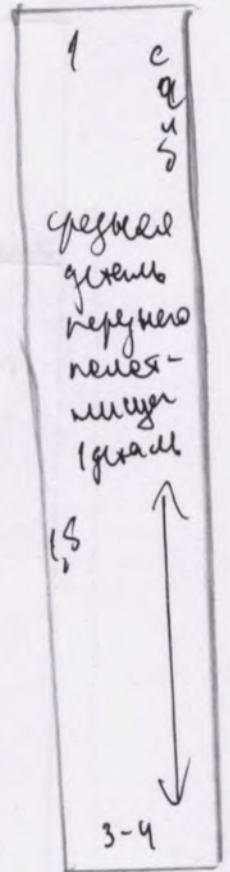 1
сгиб
средняя
деталь
переднего
полот-
нища
1 деталь
1,5
3-4